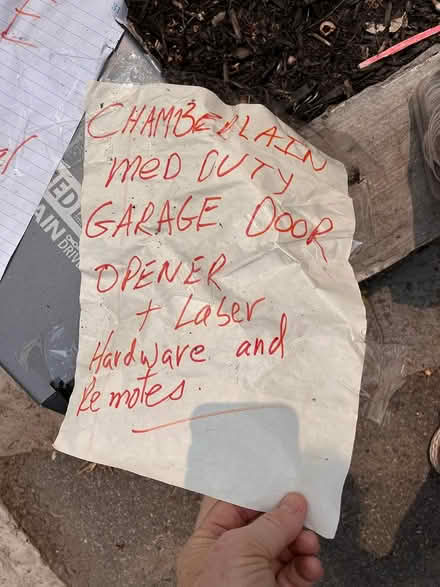 CHAMBERLAIN
MED DUTY
GARAGE DOOR
OPENER
+ Laser
Hardware and
Remotes.